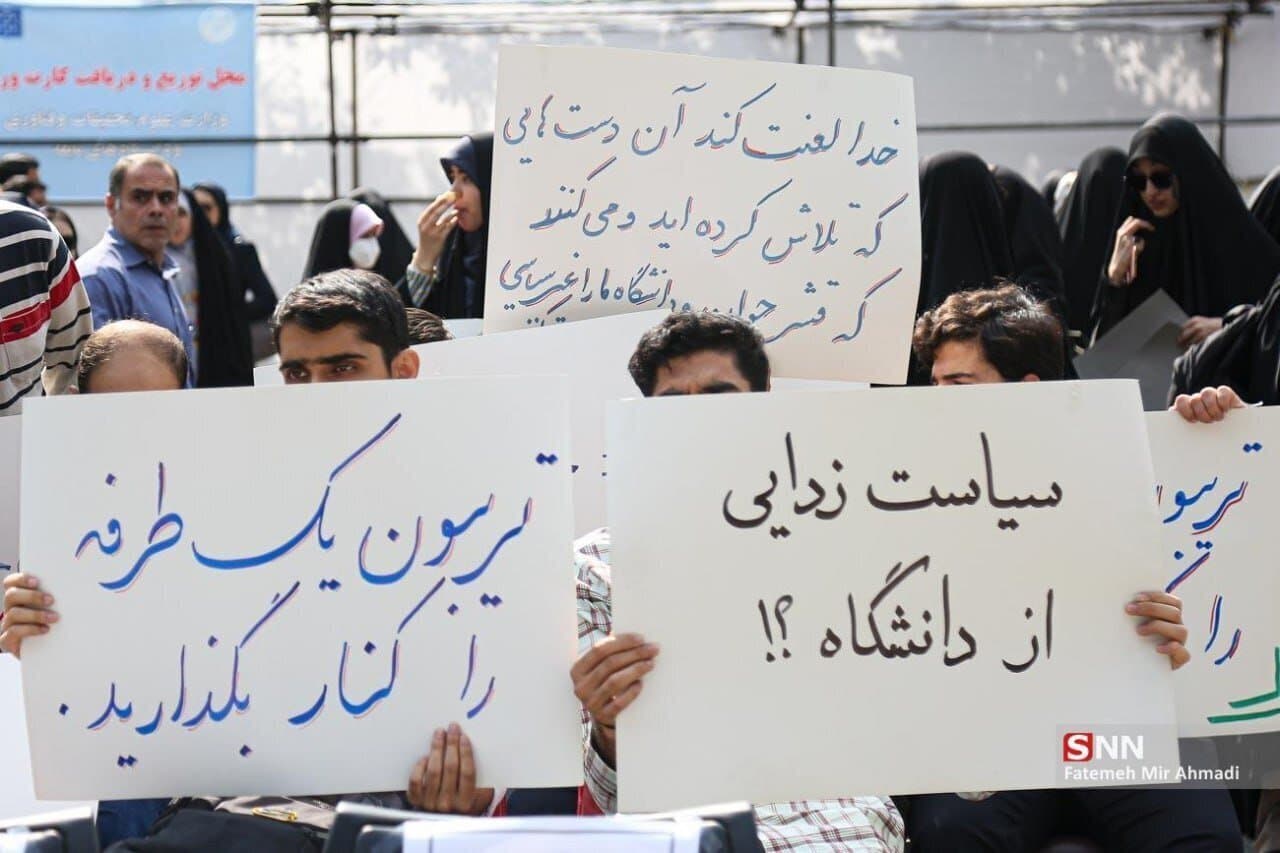 محل توزیع و دریافت کارت
وزارت علوم تحقیقات و فناوری
خدا لعنت کند آن دست‌هایی
که تلاش کرده اید و می کنند
که قشر جوان و دانشگاه ما را غیر سیاسی
تریبون یک طرفه
را کنار بگذارید.
سیاست زدایی
از دانشگاه ؟!
تریبون
را
SNN
Fatemeh Mir Ahmadi